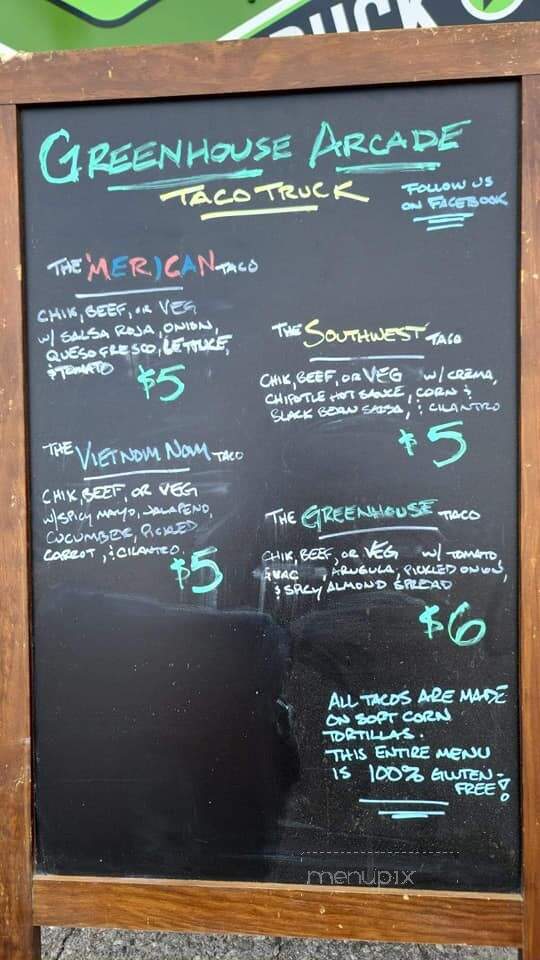 UCK
GREENHOUSE ARCADE
TACO TRUCK
FOLLOW US
ON FACEBOOK
THE 'MERICAN TACO
CHIK, BEEF, OR VEG
W/ SALSA ROJA, ONION,
QUESO FRESCO, LETTUCE,
& TOMATO $5
THE SOUTHWEST TACO
CHIK, BEEF, OR VEG W/ CREMA,
CHIPOTLE HOT SAUCE, CORN &
BLACK BEAN SALSA, & CILANTRO
$5
THE VIETNOM NOM TACO
CHIK, BEEF, OR VEG
W/ SPICY MAYO, JALAPENO,
CUCUMBER, PICKLED
CARROT, & CILANTRO.
$5
THE GREENHOUSE TACO
CHIK, BEEF, OR VEG W/ TOMATO,
GUAC, ARUGULA, PICKLED ONION,
& SPICY ALMOND SPREAD
$6
ALL TACOS ARE MADE
ON SOFT CORN
TORTILLAS.
THIS ENTIRE MENU
IS 100% GLUTEN-
FREE!
menupix